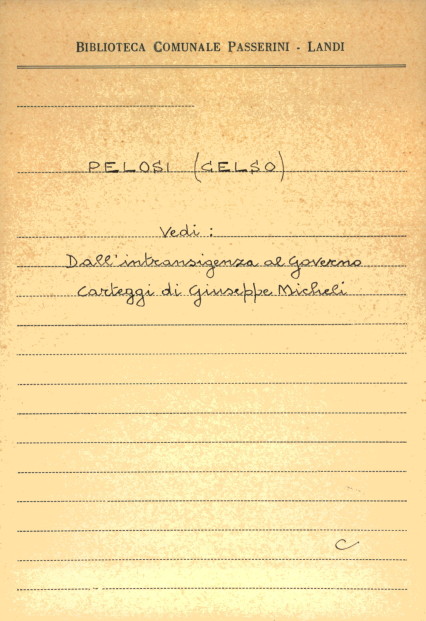 BIBLIOTECA COMUNALE PASSERINI - LANDI
PELOSI (CELSO)
Vedi :
Dall'intransigenza al Governo
Carteggi di Giuseppe Micheli
C